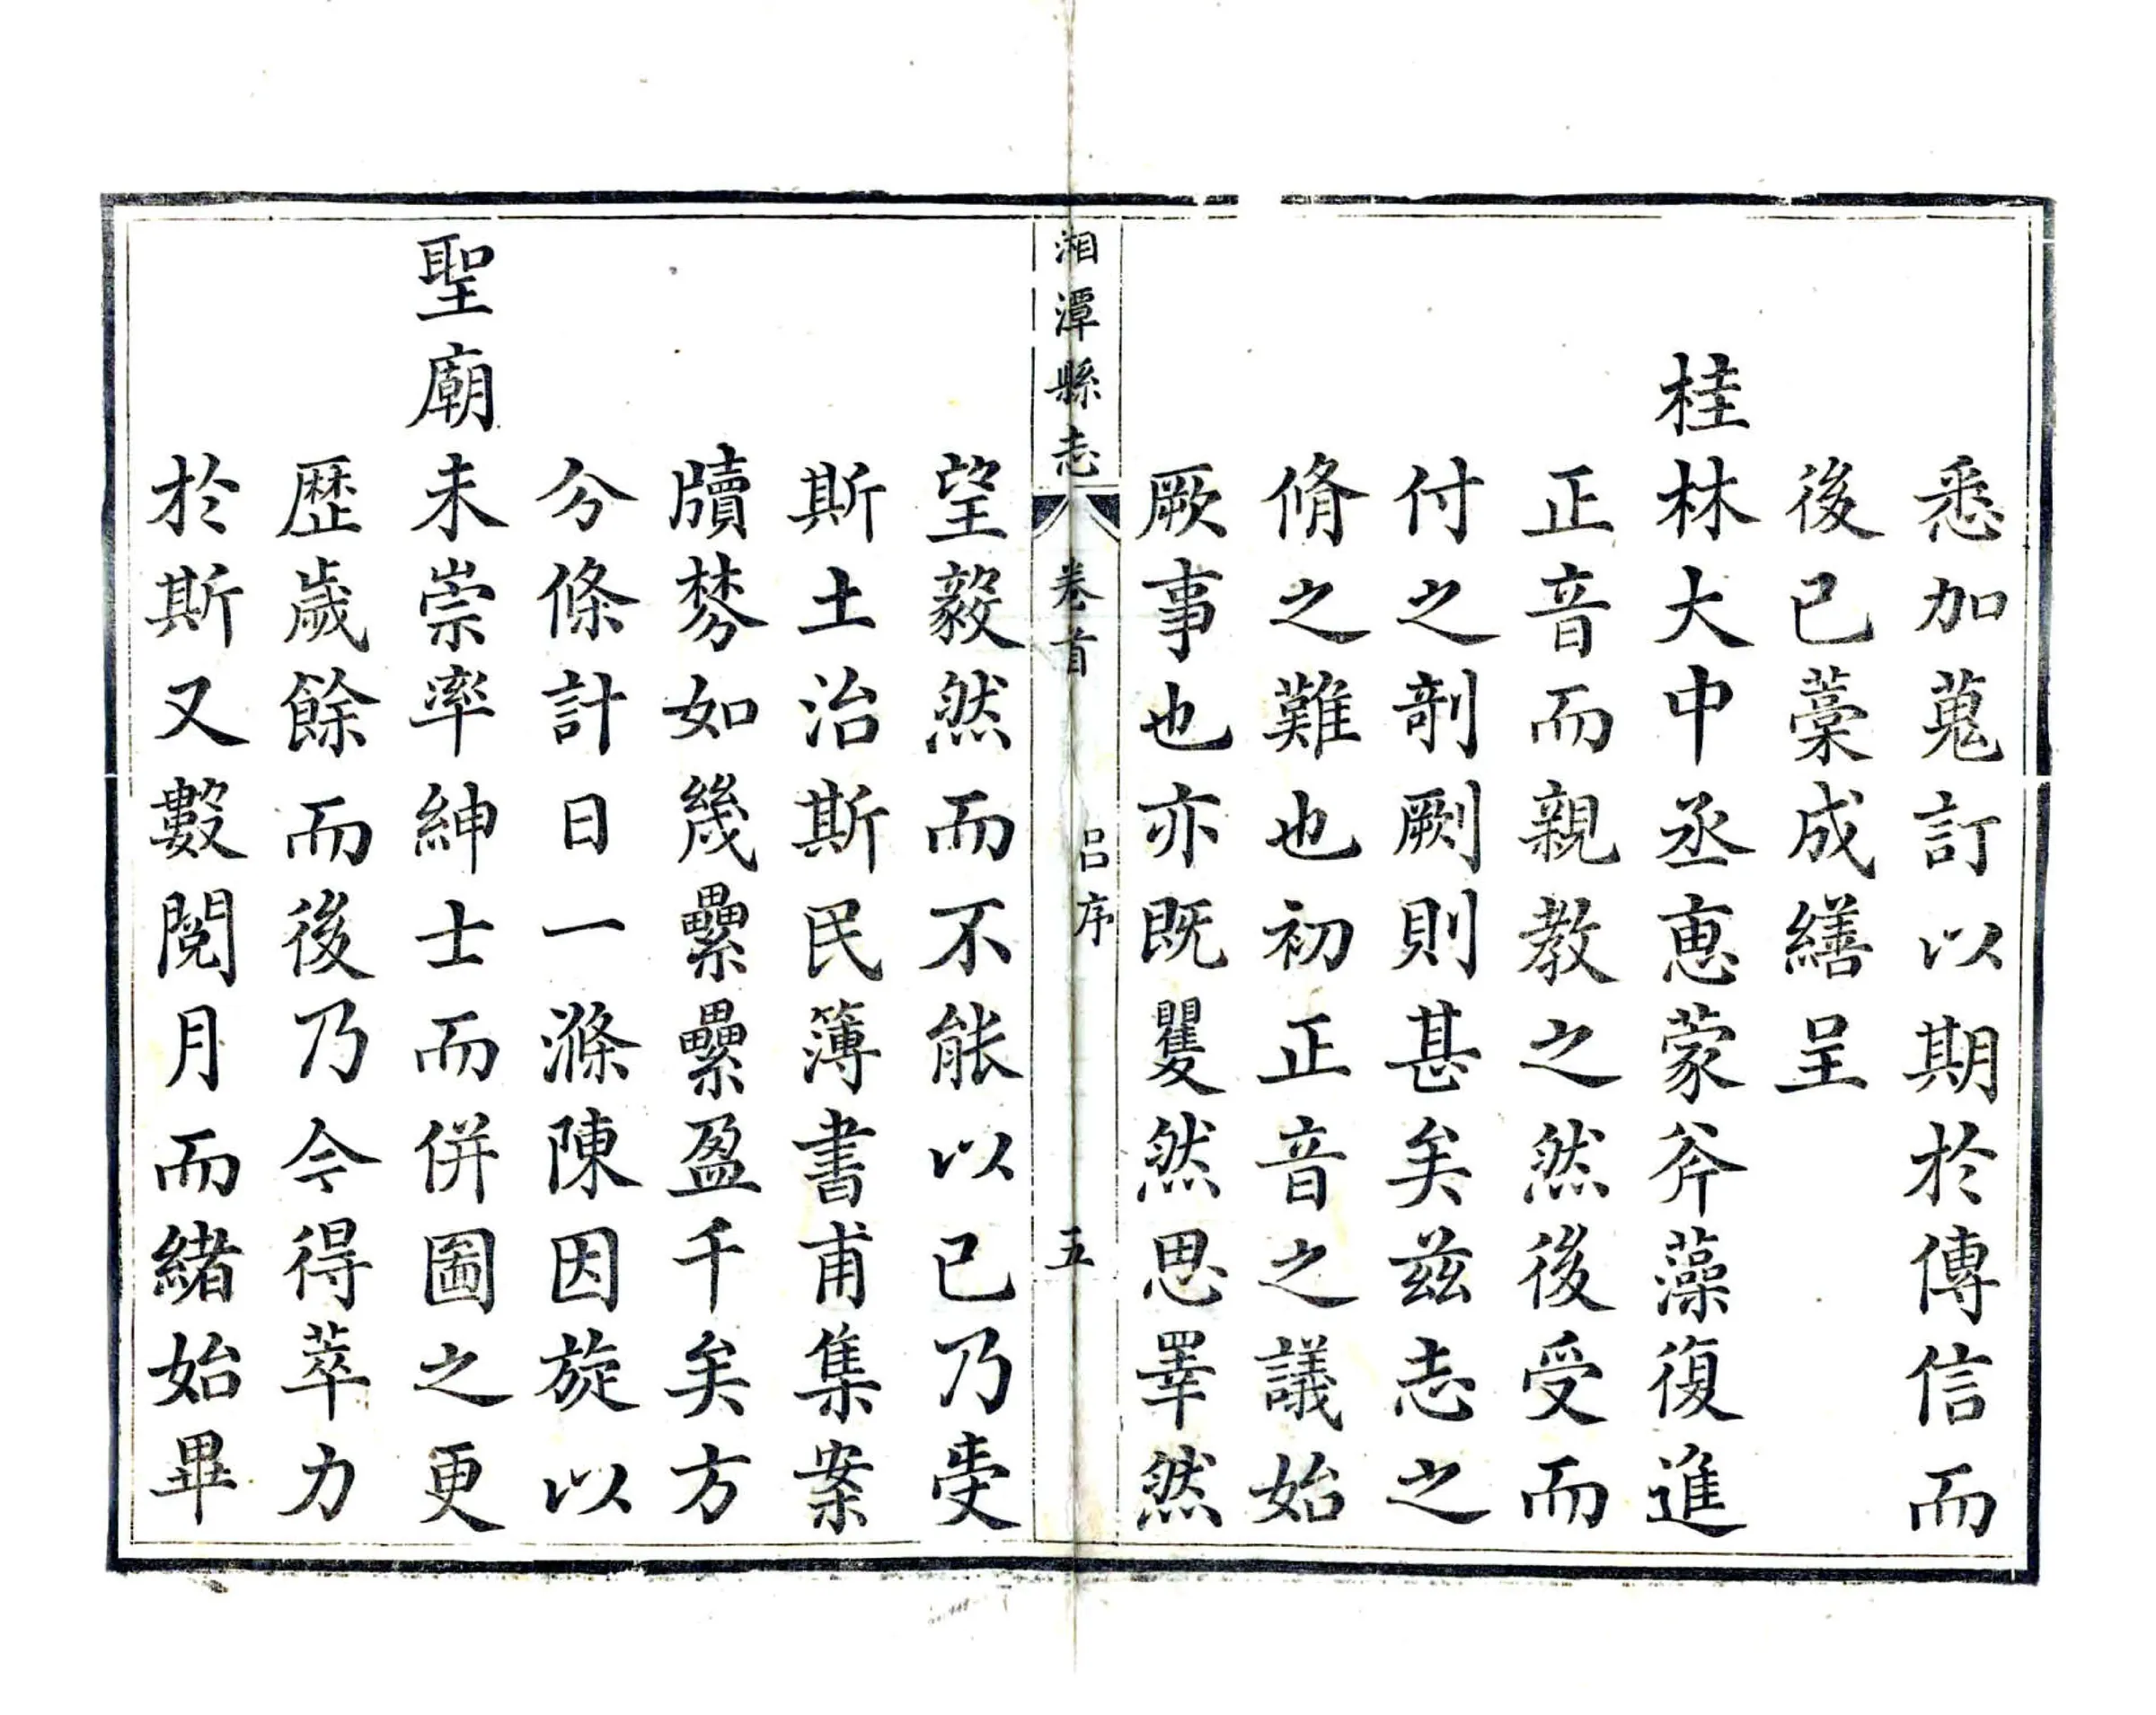 悉加蒐訂以期於傳信而
後已藁成繕呈
桂林大中丞恵蒙斧藻復進
正音而親教之然後受而
付之剞劂則甚矣兹志之
脩之難也初正音之議始
厥事也亦既矍然思睪然
湘潭縣志 卷首 呂序 五
望毅然而不能以已乃受
斯土治斯民簿書甫集案
牘棼如幾纍纍盈千矣方
分條計日一滌陳因旋以
聖廟未崇率紳士而併圖之更
歴歲餘而後乃今得萃力
於斯又數閱月而緒始畢